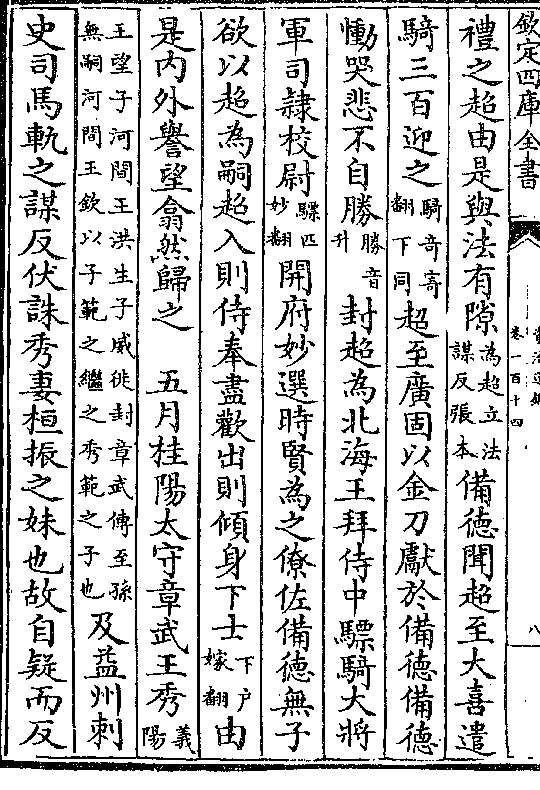 欽定四庫全書
資治通鑑
卷一百十四
八
禮之超由是與法有隙為超立法謀反張本備德聞超至大喜遣
騎三百迎之騎奇寄翻下同超至廣固以金刀獻於備德備德
慟哭悲不自勝勝音升封超為北海王拜侍中驃騎大將
軍司隸校尉驃匹妙翻開府妙選時賢為之僚佐備德無子
欲以超為嗣超入則侍奉盡歡出則傾身下士下戶嫁翻由
是内外譽望翕然歸之 五月桂陽太守章武王秀義陽
王望子河間王洪生子威徙封章武傳至孫無嗣河間王欽以子範之繼之秀範之子也及益州刺
史司馬軌之謀反伏誅秀妻桓振之妹也故自疑而反